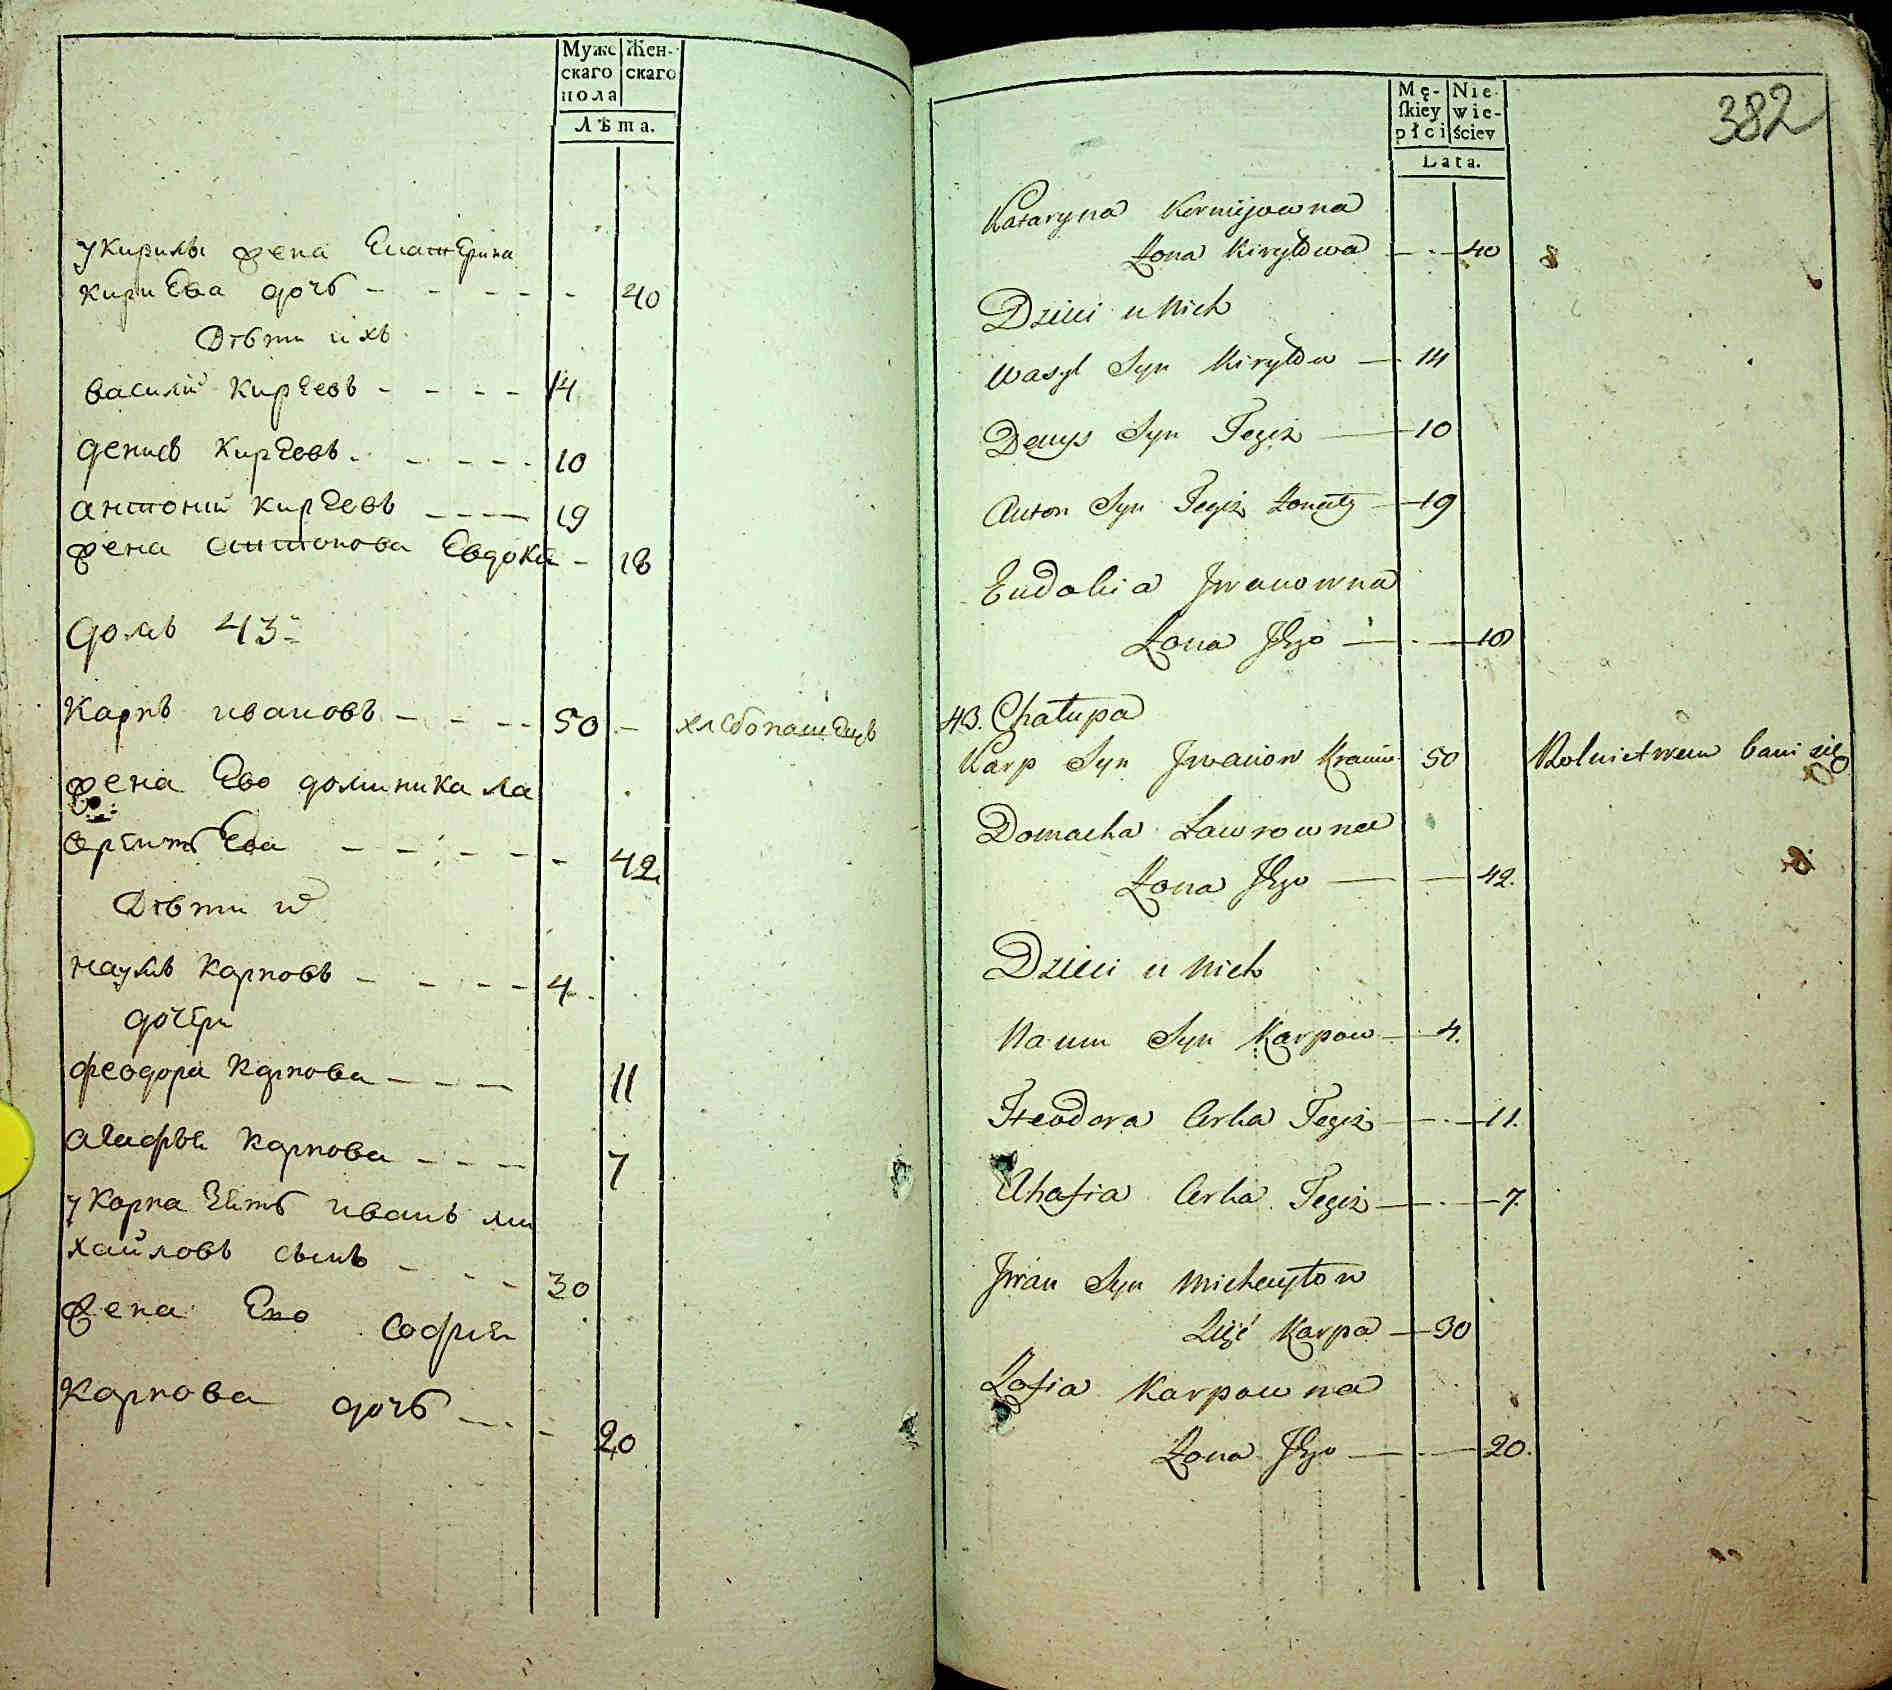 Муже Жен-
скаго скаго
пола
Лѣта.
у Кирилы жена Екатерина
Кириева дочь - - - - - 40
Дѣти ихъ
василий Киреевъ - - - - 14
денисъ Киреевъ - - - - 10
антоний Киреевъ - - - - 19
жена антонова Евдокия - 18
домъ 43й
Карпъ ивановъ - - - - 50 - хлебопашецъ
жена Ево доминика ла
врентьева - - - - - 42
Дѣти их
наумъ Карповъ - - - - 4
дочери
феодора Карпова - - - 11
агафья Карпова - - - 7
у Карпа зять иванъ ми
хайловъ сынъ - - - 30
жена Ево софия
Карпова дочь - - - 20
382
Mę- Nie-
skiey wie-
płci ściey
Lata.
Kataryna
Żona Kiryłowa - - 40
Dzieci u Nich
Wasyl Syn Kiryłow - 14
Denys Syn Tegoż - 10
Anton Syn Tegoż Żonaty - 19
Eudokia Jwanowna
Żona Jego - - 18
43. Chałupa
Karp Syn Jwanow 50 Rolnictwem bawi się
Domacha Ławrowna
Żona Jego - - 42.
Dzieci u Nich
Naum Syn Karpow - 4.
Fteodora Corka Tegoż - - 11.
Ahafia Corka Tegoż - - 7.
Jwan Syn Michayłow
Zięć Karpa - 30
Zofia Karpowna
Żona Jego - - 20.